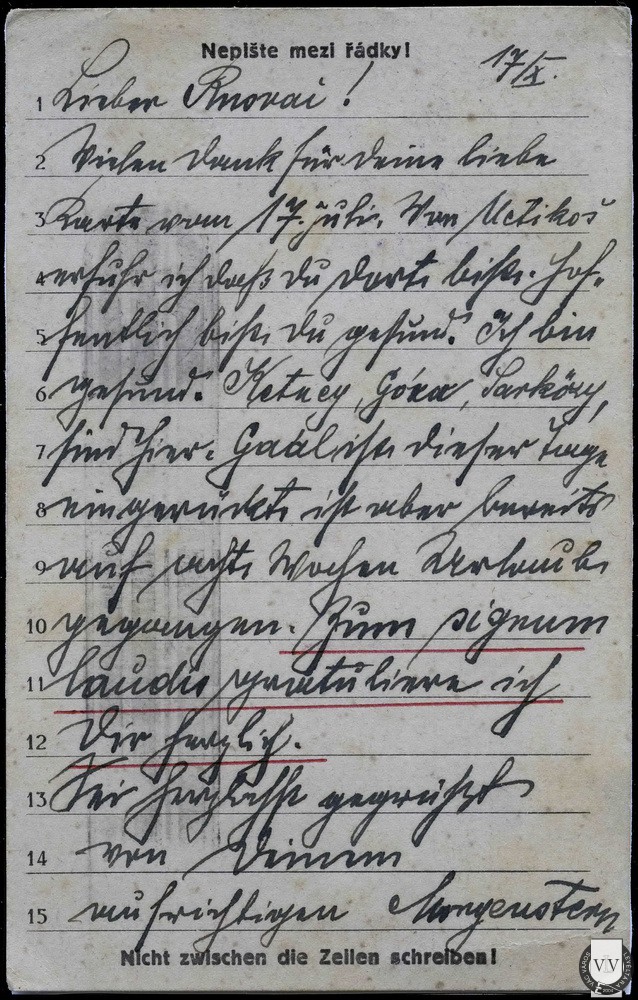 Nepište mezi řádky!
17/X.
1 Lieber Rnovai!
2 Vielen Dank für deine liebe
3 Karte vom 17. Juli. Von Uctikoš
4 erfuhr ich daß du dort bist. Hof-
5 fentlich bist du gesund. Ich bin
6 gesund. Ketney, Góra, Sarközy,
7 sind hier. Gaál ist dieser Tage
8 eingerückt ist aber bereits
9 auf acht Wochen Urlaub
10 gegangen. Zum signum
11 laudis gratuliere ich
12 Dir herzlich.
13 Sei herzlichst gegrüßt
14 von Deinem
15 aufrichtigen Morgenstern
Nicht zwischen die Zeilen schreiben!
VV